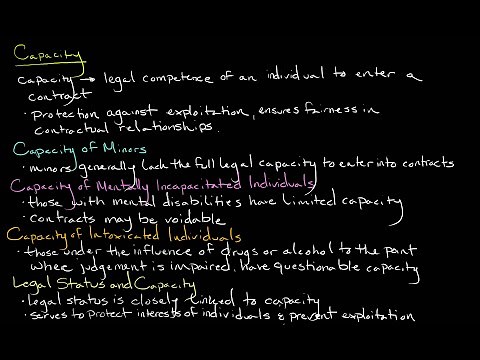 Capacity
Capacity → legal competence of an individual to enter a
contract
• Protection against exploitation, ensures fairness in
contractual relationships.
Capacity of Minors
• minors generally lack the full legal capacity to enter into contracts
Capacity of Mentally Incapacitated Individuals
• those with mental disabilities have limited capacity
• contracts may be voidable
Capacity of Intoxicated Individuals
• those under the influence of drugs or alcohol to the point
where judgement is impaired, have questionable capacity
Legal Status and Capacity
• legal status is closely linked to capacity
• serves to protect interests of individuals & prevent exploitation